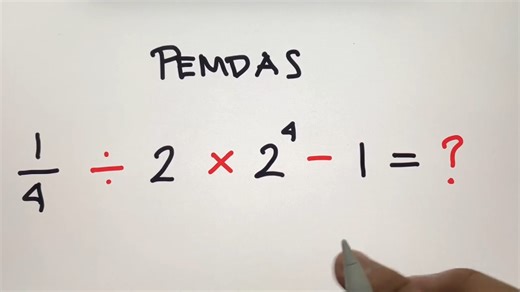 PEMDAS
1/4 ÷ 2 × 2⁴ − 1 = ?